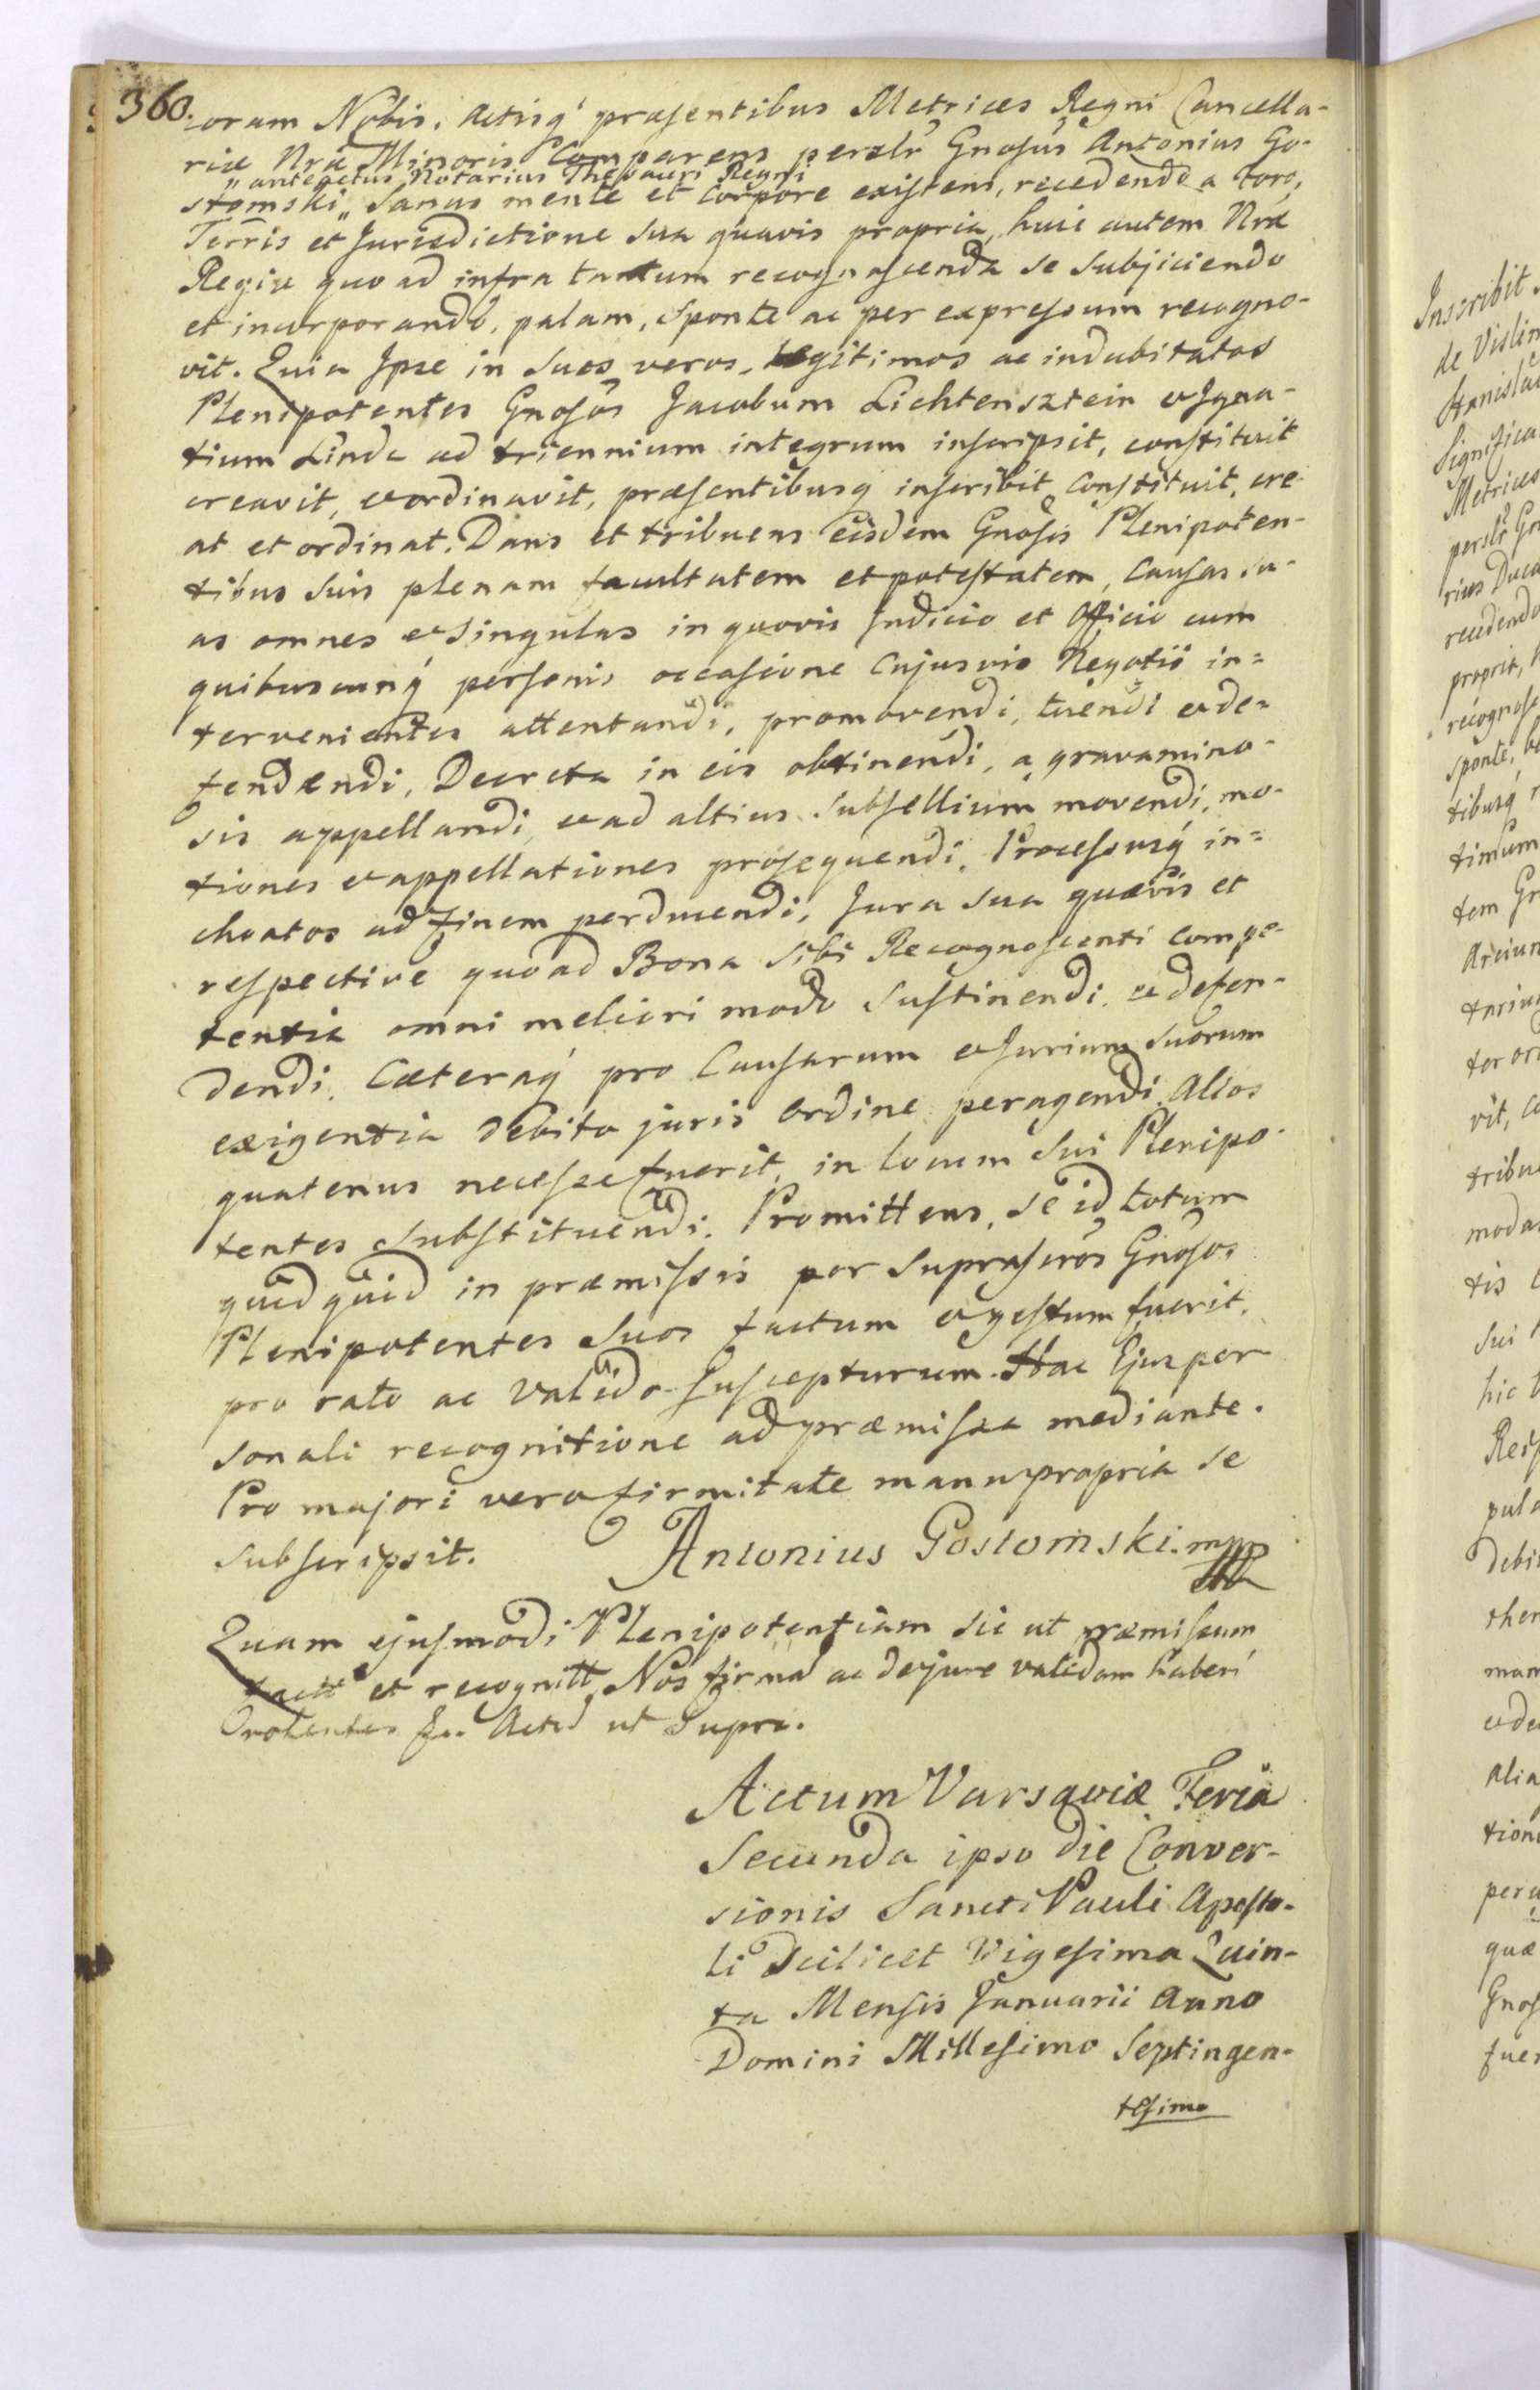 360.
coram Nobis, Actisq́ præsentibus Metrices Regni Cancella-
riæ Nræ Minoris Comparens persłr Gnosus Antonius Go-
„ anteactus Notarius Thesauri Regni
stomski „ Sanus mente et Corpore existens, recedendo a Foro,
Terris et Jurisdictione sua quavis propria, huic autem Nræ
Regiæ quo ad infra tantum recognoscenda se subjiciendo
et incorporando, palam, sponte ac per expressum recogno-
vit. Quia Ipse in Suos veros, legitimos ac indubitatos
Plenipotentes Gnosos Jacobum Lichtensztein et Igna-
tium Linde ad triennium integrum inscripsit, constituit
creavit, et ordinavit, præsentibusq inscribit, Constituit, cre
at et ordinat. Dans et tribuens Eisdem Gnosis Plenipoten-
tibus Suis plenam facultatem et potestatem, Causas su-
as omnes et Singulas in quovis Judicio et Officio cum
quibuscunq́ personis occasione Cujusvis Negotii in=
tervenientes attentandi, promovendi, tuendi et de=
fendendi, Decreta in eis obtinendi, a gravamino-
sis appellandi, et ad altius Subsellium movendi, mo-
tiones et appellationes prosequendi, Processusq́ in=
choatos ad finem perducendi, Jura Sua quævis et
respective quoad Bona Sibi Recognoscenti Compe-
tentia omni meliori modo Sustinendi, et defen-
dendi, Cæteraq́ pro Causarum et Jurium Suorum
exigentia debito juris Ordine peragendi, Alios
quatenus necesse fuerit, in locum Sui Plenipo-
tentes Substituendi. Promittens, Se id totum
quidquid in præmissis per Suprascros Gnosos
Plenipotentes Suos factum et gestum fuerit,
pro rato ac Valido Suscepturum. Hac Ejus per
sonali recognitione ad præmissa mediante.
Pro majori vero firmitate manu propria se
Subscripsit. Antonius Gostomski. mpp
Quam ejusmodi Plenipotentiam sic ut præmissum
factt et recognitt Nos firmã ac de jure validam haberi
volentes Actũ ut Supra.
Actum Varsaviæ Feria
Secunda ipso die Conver-
sionis Sancti Pauli Aposto-
li Scilicet Vigesima Quin-
ta Mensis Januarii Anno
Domini Millesimo Septingen-
tesimo
Inscribit
de Vislin
Stanisla
Significa
Metrices
persłr Gn
rius Duca
recedendo
propria,
recognosc
sponte,
tibusq
timum
tem Gn
tor or
vit, C
tribue
moda
tis
Sui
hic
Resp
pula
debi
man
et de
Alia
tion
pera
quæ
Gnos
fuer